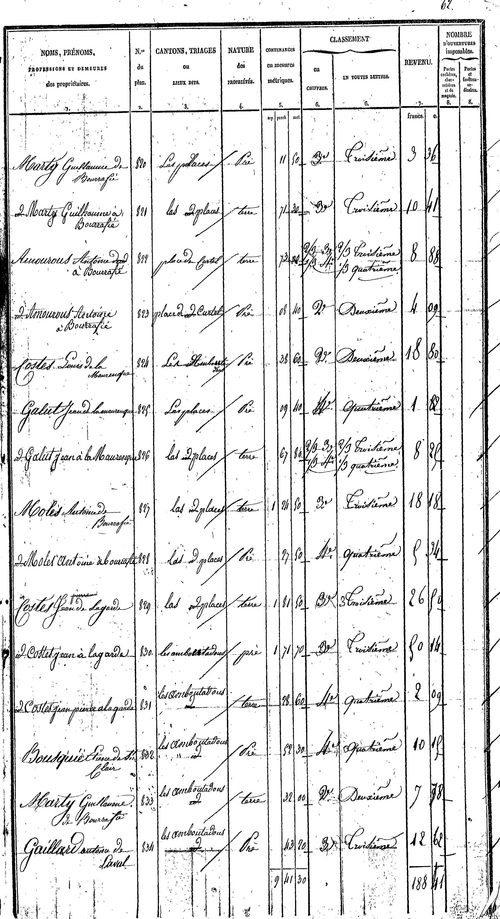 62.
NOMS, PRÉNOMS,
PROFESSIONS ET DEMEURES
des propriétaires.
N.os
du
plan.
CANTONS, TRIAGES
ou
LIEUX DITS.
NATURE
des
PROPRIÉTÉS.
CONTENANCES
en mesures
métriques.
CLASSEMENT
en
CHIFFRES.
EN TOUTES LETTRES.
REVENU.
NOMBRE
D'OUVERTURES
imposables.
1. 2. 3. 4. 5. 6. 6. 7. 8. 8.
francs c.
Marty Guillaume de Bourrafié 820 Les places Pré 11 50 3e Troisième 3 36
d Marty Guilhaume à Bourrafié 821 las d places terre 71 3e Troisième 10 41
Amourous Antoine à Bourrafié 822 place de Curlet terre 2/3 3e 1/3 4e 2/3 Troisième 1/3 quatrième 8 88
d Amourous Antoine à Bourrafié 823 place d d Curlet Pré 08 40 2e Deuxième 4 09
Costes Louis de la Mourenque 824 Pré 38 60 2e Deuxième 18 80
Galut Jean 825 Les places Pré 09 40 4e quatrième 1
d Galut Jean à la Mauresque 826 las d places terre 67 80 2/3 3e 1/3 4e 2/3 Troisième 1/3 quatrième 8
Molés Antoine de Bourrafié 827 las d places terre 1 24 50 3e Troisième 18 18
d Moles antoine de bourrafie 828 las d places Pré 27 50 4e quatrième 5 34
Costes Jean pierre de Lagarde 829 las d places terre 1 81 50 3e Troisième 26 50
d Costet jean à lagarde 830 les amboutadous pré 1 71 70 3e Troisième 50 14
d Costes jean pierre a lagarde 831 les amboutadous terre 98 60 4e quatrième 2 09
Bousquié Etienne de St Clair 832 les amboutadous d Pré 52 30 4e Quatrième 10 15
Marty Guillaume de Bourrafié 833 les amboutadous d terre 32 00 2e Deuxième 7 78
Gaillard antoine de Laval 834 les amboutadous d Pré 43 20 3e Troisième 12 62
9 41 30 188 41